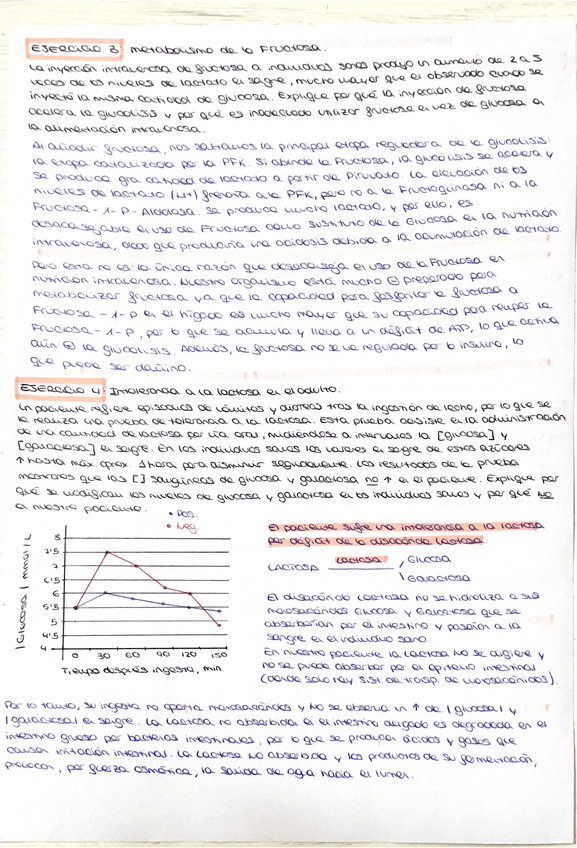 EJERCICIO 3: Metabolismo de la Fructosa.
La inyección intravenosa de fructosa a individuos sanos produjo un aumento de 2 a 5
veces de los niveles de lactato en sangre, mucho mayor que el observado cuando se
inyectó la misma cantidad de glucosa. Explique por qué la inyección de fructosa
acelera la glucólisis y por qué es inadecuado utilizar fructosa en vez de glucosa en
la alimentación intravenosa.
Al añadir fructosa, nos saltamos la principal etapa reguladora de la glucólisis:
la etapa catalizada por la PFK. Si abunda la Fructosa, la glucólisis se acelera y
se produce gran cantidad de lactato a partir de Piruvato. La elevación de los
niveles de lactato (H+) frenaría a la PFK, pero no a la Fructoquinasa ni a la
Fructosa-1-P-Aldolasa. Se produce mucho lactato, y por ello, es
desaconsejable el uso de Fructosa como sustituto de la Glucosa en la nutrición
intravenosa, dado que produciría una acidosis debida a la acumulación de lactato.
Pero esta no es la única razón que desaconseja el uso de la Fructosa en
nutrición intravenosa. Nuestro organismo está mucho ⊖ preparado para
metabolizar fructosa, ya que la capacidad para fosforilar la fructosa a
Fructosa-1-P en el hígado es mucho mayor que su capacidad para romper la
Fructosa-1-P, por lo que se acumula y lleva a un déficit de ATP, lo que activa
aún ⊕ la glucólisis. Además, la fructosa no se ve regulada por la insulina, lo
que puede ser dañino.
EJERCICIO 4: Intolerancia a la lactosa en el adulto.
Un paciente refiere episodios de vómitos y diarreas tras la ingestión de leche, por lo que se
le realiza una prueba de tolerancia a la lactosa. Esta prueba consiste en la administración
de una cantidad de lactosa por vía oral, midiéndose a intervalos la [glucosa] y
[galactosa] en sangre. En los individuos sanos los valores en sangre de estos azúcares
↑ hasta máx. aprox. 1 hora para disminuir seguidamente. Los resultados de la prueba
mostraron que las [] sanguíneas de glucosa y galactosa no ↑ en el paciente. Explique por
qué se modifican los niveles de glucosa y galactosa en los individuos sanos y por qué no
en nuestro paciente.
• Pos.
• Neg.
|Glucosa| mmol/L
8
7'5
7
6'5
6
5'5
5
4'5
4
0 30 60 90 120 150
Tiempo después ingesta, min
El paciente sufre una intolerancia a la lactosa
por déficit de la disacárida Lactasa.
LACTOSA Lactasa Glucosa
Galactosa
El disacárido Lactosa no se hidroliza a sus
monosacáridos Glucosa y Galactosa que se
absorberían por el intestino y pasarían a la
sangre en el individuo sano.
En nuestro paciente la Lactosa no se digiere y
no se puede absorber por el epitelio intestinal
(donde solo hay sist. de transp. de monosacáridos).
Por lo tanto, su ingesta no aporta monosacáridos y no se observa un ↑ de |glucosa| y
|galactosa| en sangre. La Lactosa no absorbida en el intestino delgado es degradada en el
intestino grueso por bacterias intestinales, por lo que se producen ácidos y gases que
causan irritación intestinal. La Lactosa no absorbida y los productos de su fermentación,
provocan, por fuerza osmótica, la salida de agua hacia el lumen.